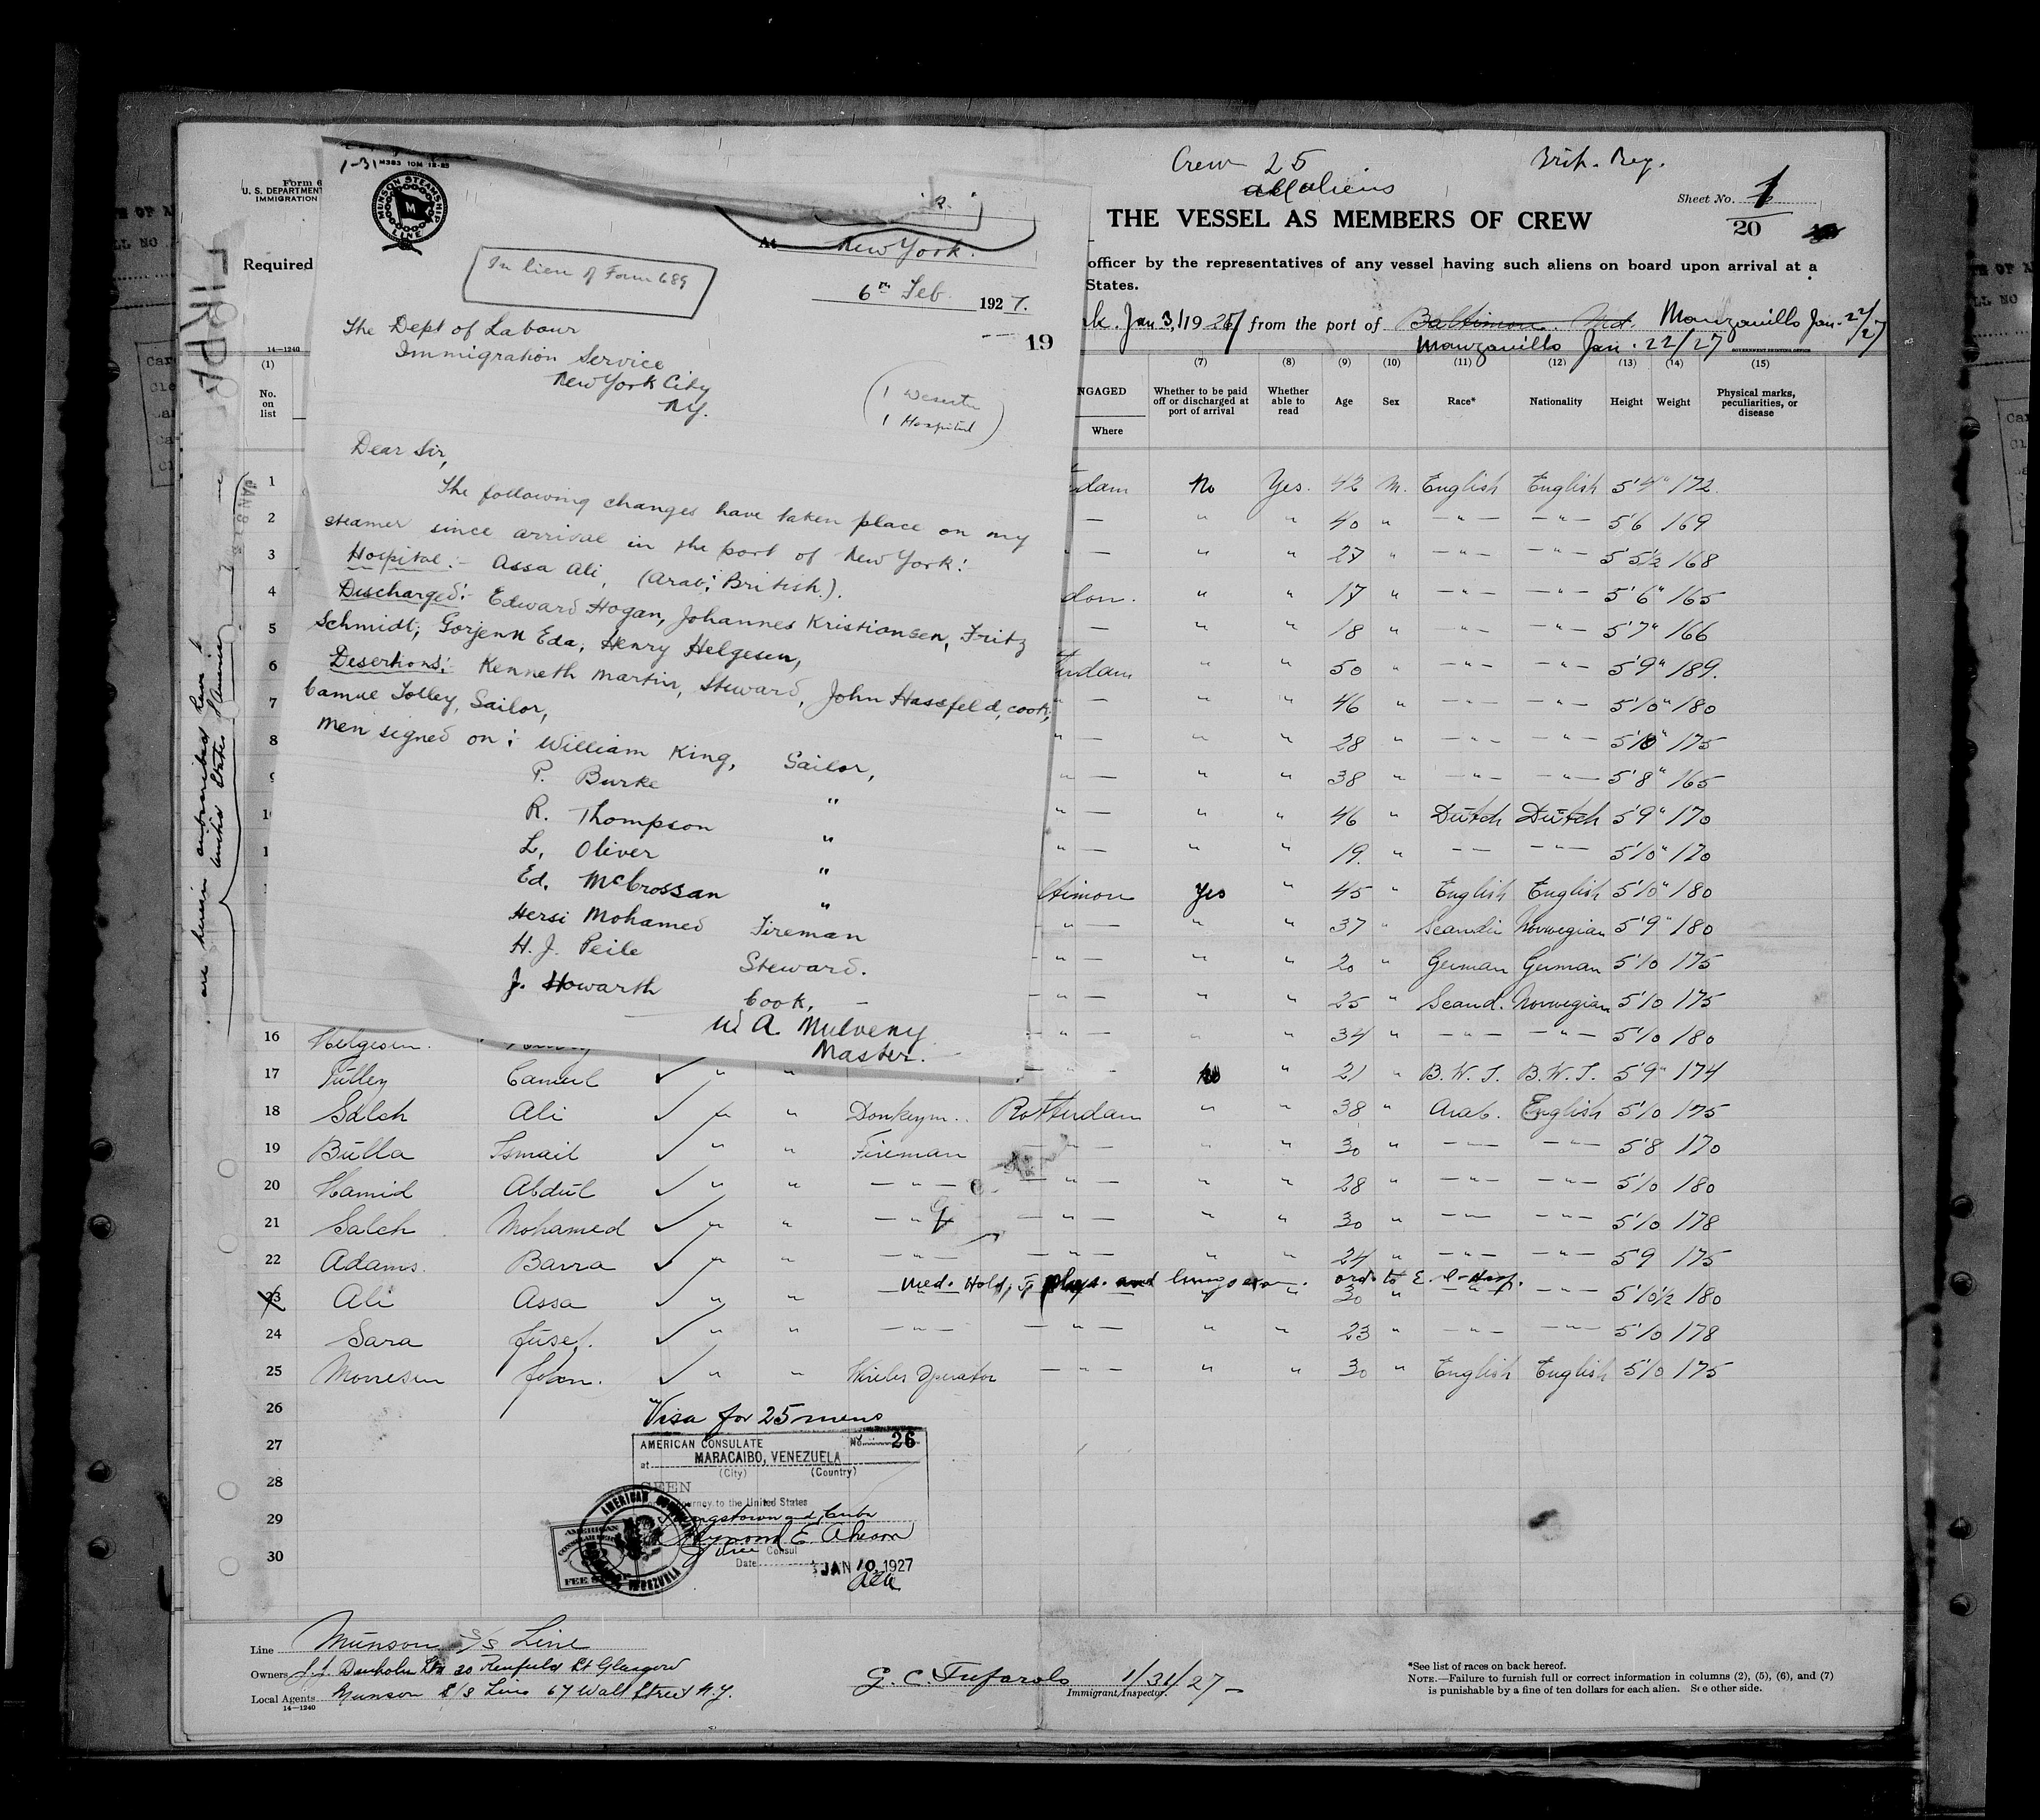 1-31 M383 10M 12-25
MUNSON STEAMSHIP LINE
M
Form 6
U. S. DEPARTMENT
IMMIGRATION
Required
14-1240
At New York.
6th Feb 1927.
In lieu of Form 689
The Dept of Labour
Immigration Service
New York City
N.Y.
( 1 Deserter
1 Hospital )
19
Dear Sir,
The following changes have taken place on my
steamer since arrival in the port of New York:
Hospital:- Assa Ali, (Arab; British.).
Discharged:- Edward Hogan, Johannes Kristionsen, Fritz
Schmidt, Gorjenn Eda, Henry Helgesen,
Desertions:- Kenneth Martin, Steward, John Hassfeld, cook,
Camue Tolley, Sailor,
Men signed on: William King, Sailor,
P. Burke "
R. Thompson "
L. Oliver "
Ed. McCrossan "
Hersi Mohamed Fireman
H. J. Peile Steward.
J. Howarth Cook, -
W A. Mulveny
Master.
Crew 25
all aliens
Brit. Reg.
Sheet No. 1
20
THE VESSEL AS MEMBERS OF CREW
officer by the representatives of any vessel having such aliens on board upon arrival at a
States.
rk. Jan 31 1927 from the port of Baltimore. Md. Manzanillo Jan. 22/27
Manzanillo Jan. 22/27
GOVERNMENT PRINTING OFFICE
(1) (7) (8) (9) (10) (11) (12) (13) (14) (15)
No. on list
NGAGED
Where
Whether to be paid off or discharged at port of arrival
Whether able to read
Age
Sex
Race*
Nationality
Height
Weight
Physical marks, peculiarities, or disease
1 rdam No Yes. 42 M. English English 5'4" 172.
2 — " " 40 " — " — — " — 5'6 169
3 " — " " 27 " — " — — " — 5'5½ 168
4 don. " " 17 " — " — — " — 5'6" 165
5 — " " 18 " — " — — " — 5'7" 166
6 erdam " " 50 " — " — — " — 5'9" 189.
7 " — " " 46 " — " — — " — 5'10" 180
8 " — " " 28 " — " — — " — 5'10" 175
9 " — " " 38 " — " — — " — 5'8" 165
10 " — " " 46 " Dutch Dutch 5'9" 170
1 " — " " 19. " — — — " — 5'10" 170
1 ltimore Yes " 45 " English English 5'10" 180
" — " " 37 " Scandi Norwegian 5'9" 180
" — " " 20 " German German 5'10 175
" — " " 25 " Scand. Norwegian 5'10 175
16 Helgesen. Henry " — " " 34 " — " — — " — 5'10 180
17 Tulley Camul ✓ " " " No " 21 " B. W. I. B. W. I. 5'9" 174
18 Saleh Ali ✓ " " Donkeym.. Rotterdam " " 38 " Arab. English 5'10 175
19 Bulla Ismail ✓ " " Fireman — — " " 30 " — " — — " — 5'8 170
20 Hamid Abdul ✓ " " — " — — " — " " 28 " — " — — " — 5'10 180
21 Saleh Mohamed ✓ " " — " — — " — " " 30 " — " — — " — 5'10 178
22 Adams. Barra ✓ " " — " — — " — " " 24 " — " — — " — 5'9 175
Med. Hold, phys. and lungs exam. ord. to E. I. Hosp.
23 Ali Assa ✓ " " — " — — " — " " 30 " — " — — " — 5'10½ 180
24 Sara Jusef. ✓ " " — " — — " — " " 23 " — " — — " — 5'10 178
25 Morresen John. ✓ " " Wireles Operator — " — " " 30 " English English 5'10 175
26
27
28
29
30
Visa for 25 mens
AMERICAN CONSULATE No. 26
at MARACAIBO, VENEZUELA
(City) (Country)
SEEN
journey to the United States
and, Cuba
Raymond E. Ahearn
Vice Consul
Date JAN 10 1927
AMERICAN
FEE
VENEZUELA
are herein
United States
JAN 31
Line Munson S/S Line
Owners J.J. Denholm Ltd 20 Renfield St Glasgow
Local Agents Munson S/S Line 67 Wall Street N.Y.
14-1240
G. C. Tufarolo 1/31/27 –
Immigrant Inspector.
*See list of races on back hereof.
NOTE.—Failure to furnish full or correct information in columns (2), (5), (6), and (7)
is punishable by a fine of ten dollars for each alien. See other side.